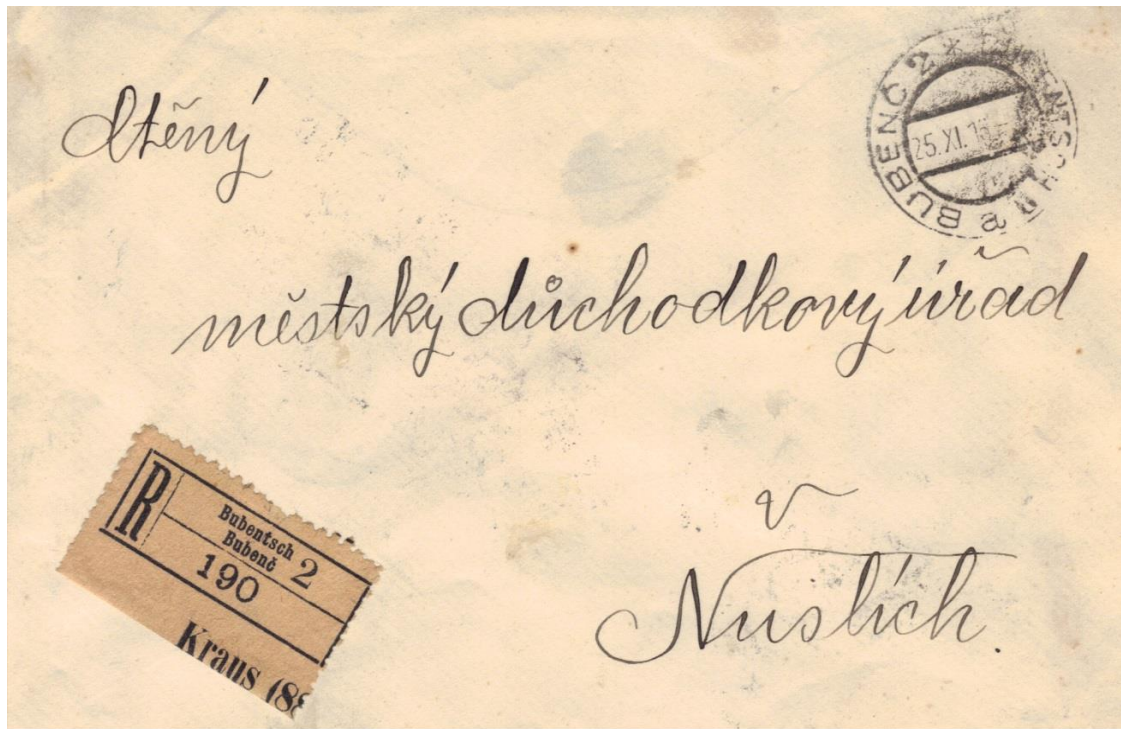 Ctěný
BUBENČ 2 * BUBENTSCH
25.XI.1
městský důchodkový úřad
v
Nuslích.
R
Bubentsch
Bubeneč 2
190
Kraus (88